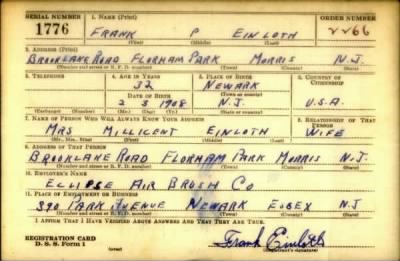 SERIAL NUMBER 1. NAME (Print) ORDER NUMBER
1776 FRANK P EINLOTH 2266
(First) (Middle) (Last)
2. ADDRESS (Print)
BROOKLAKE ROAD FLORHAM PARK MORRIS N.J.
(Number and street or R. F. D. number) (Town) (County) (State)
3. TELEPHONE 4. AGE IN YEARS 5. PLACE OF BIRTH 6. COUNTRY OF CITIZENSHIP
32 NEWARK
DATE OF BIRTH (Town or county)
2 3 1908 N.J. U.S.A.
(Exchange) (Number) (Mo.) (Day) (Yr.) (State or country)
7. NAME OF PERSON WHO WILL ALWAYS KNOW YOUR ADDRESS 8. RELATIONSHIP OF THAT PERSON
MRS MILLICENT EINLOTH WIFE
(Mr., Mrs., Miss) (First) (Middle) (Last)
9. ADDRESS OF THAT PERSON
BROOKLAKE ROAD FLORHAM PARK MORRIS N.J.
(Number and street or R. F. D. number) (Town) (County) (State)
10. EMPLOYER'S NAME
ECLIPSE AIR BRUSH CO
11. PLACE OF EMPLOYMENT OR BUSINESS
390 PARK AVENUE NEWARK ESSEX N J
(Number and street or R. F. D. number) (Town) (County) (State)
I AFFIRM THAT I HAVE VERIFIED ABOVE ANSWERS AND THAT THEY ARE TRUE.
REGISTRATION CARD
D. S. S. Form 1 Frank Einloth